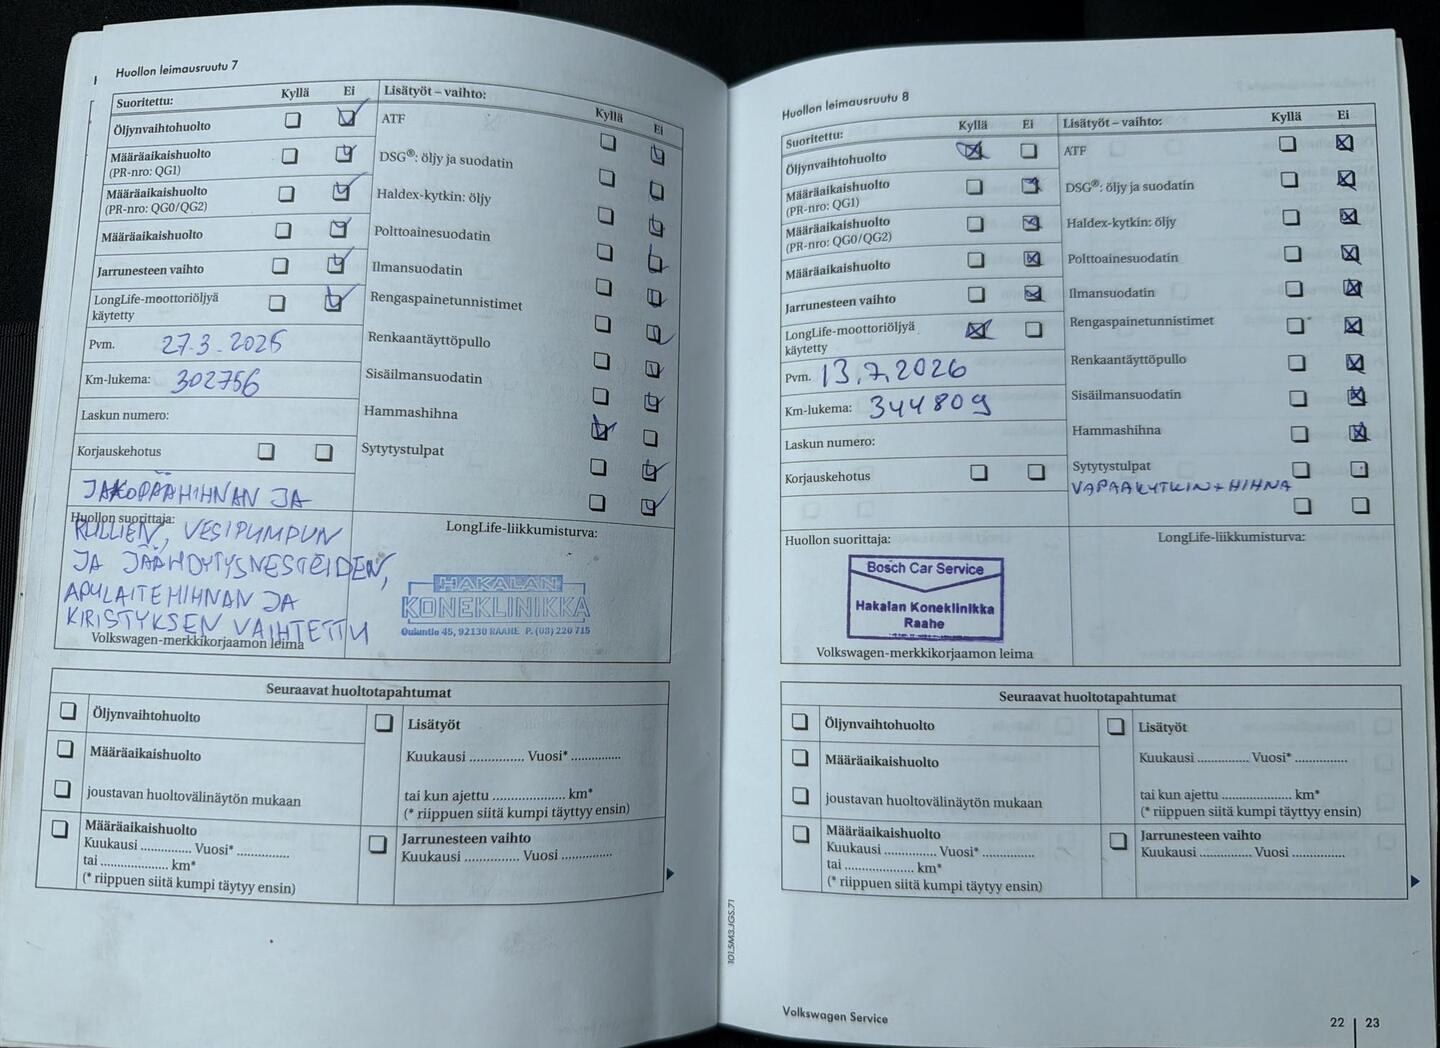 Huollon leimausruutu 7
Suoritettu: Kyllä Ei
Öljynvaihtohuolto
Määräaikaishuolto
(PR-nro: QG1)
Määräaikaishuolto
(PR-nro: QG0/QG2)
Määräaikaishuolto
Jarrunesteen vaihto
LongLife-moottoriöljyä
käytetty
Pvm. 27.3.2025
Km-lukema: 302756
Laskun numero:
Korjauskehotus
JAKOPÄÄHIHNAN JA
Huollon suorittaja:
RULLIEN, VESIPUMPUN
JA JÄÄHDYTYSNESTEIDEN,
APULAITEHIHNAN JA
KIRISTYKSEN VAIHTETTU
Volkswagen-merkkikorjaamon leima
Lisätyöt – vaihto: Kyllä Ei
ATF
DSG®: öljy ja suodatin
Haldex-kytkin: öljy
Polttoainesuodatin
Ilmansuodatin
Rengaspainetunnistimet
Renkaantäyttöpullo
Sisäilmansuodatin
Hammashihna
Sytytystulpat
LongLife-liikkumisturva:
HAKALAN
KONEKLINIKKA
45, 92130 RAAHE P. (08) 220 715
Seuraavat huoltotapahtumat
Öljynvaihtohuolto
Määräaikaishuolto
joustavan huoltovälinäytön mukaan
Määräaikaishuolto
Kuukausi .............. Vuosi* ..............
tai .................... km*
(* riippuen siitä kumpi täytyy ensin)
Lisätyöt
Kuukausi ............... Vuosi* ..............
tai kun ajettu .................... km*
(* riippuen siitä kumpi täyttyy ensin)
Jarrunesteen vaihto
Kuukausi ............... Vuosi ..............
Huollon leimausruutu 8
Suoritettu: Kyllä Ei
Öljynvaihtohuolto
Määräaikaishuolto
(PR-nro: QG1)
Määräaikaishuolto
(PR-nro: QG0/QG2)
Määräaikaishuolto
Jarrunesteen vaihto
LongLife-moottoriöljyä
käytetty
Pvm. 13.7.2026
Km-lukema: 344809
Laskun numero:
Korjauskehotus
Huollon suorittaja:
Bosch Car Service
Hakalan Koneklinikka
Raahe
Volkswagen-merkkikorjaamon leima
Lisätyöt – vaihto: Kyllä Ei
ATF
DSG®: öljy ja suodatin
Haldex-kytkin: öljy
Polttoainesuodatin
Ilmansuodatin
Rengaspainetunnistimet
Renkaantäyttöpullo
Sisäilmansuodatin
Hammashihna
Sytytystulpat
VAPAAKYTKIN+HIHNA
LongLife-liikkumisturva:
Seuraavat huoltotapahtumat
Öljynvaihtohuolto
Määräaikaishuolto
joustavan huoltovälinäytön mukaan
Määräaikaishuolto
Kuukausi .............. Vuosi* ..............
tai .................... km*
(* riippuen siitä kumpi täytyy ensin)
Lisätyöt
Kuukausi .............. Vuosi* ..............
tai kun ajettu .................... km*
(* riippuen siitä kumpi täyttyy ensin)
Jarrunesteen vaihto
Kuukausi .............. Vuosi ..............
101.5M3.JGS.71
Volkswagen Service
22 | 23